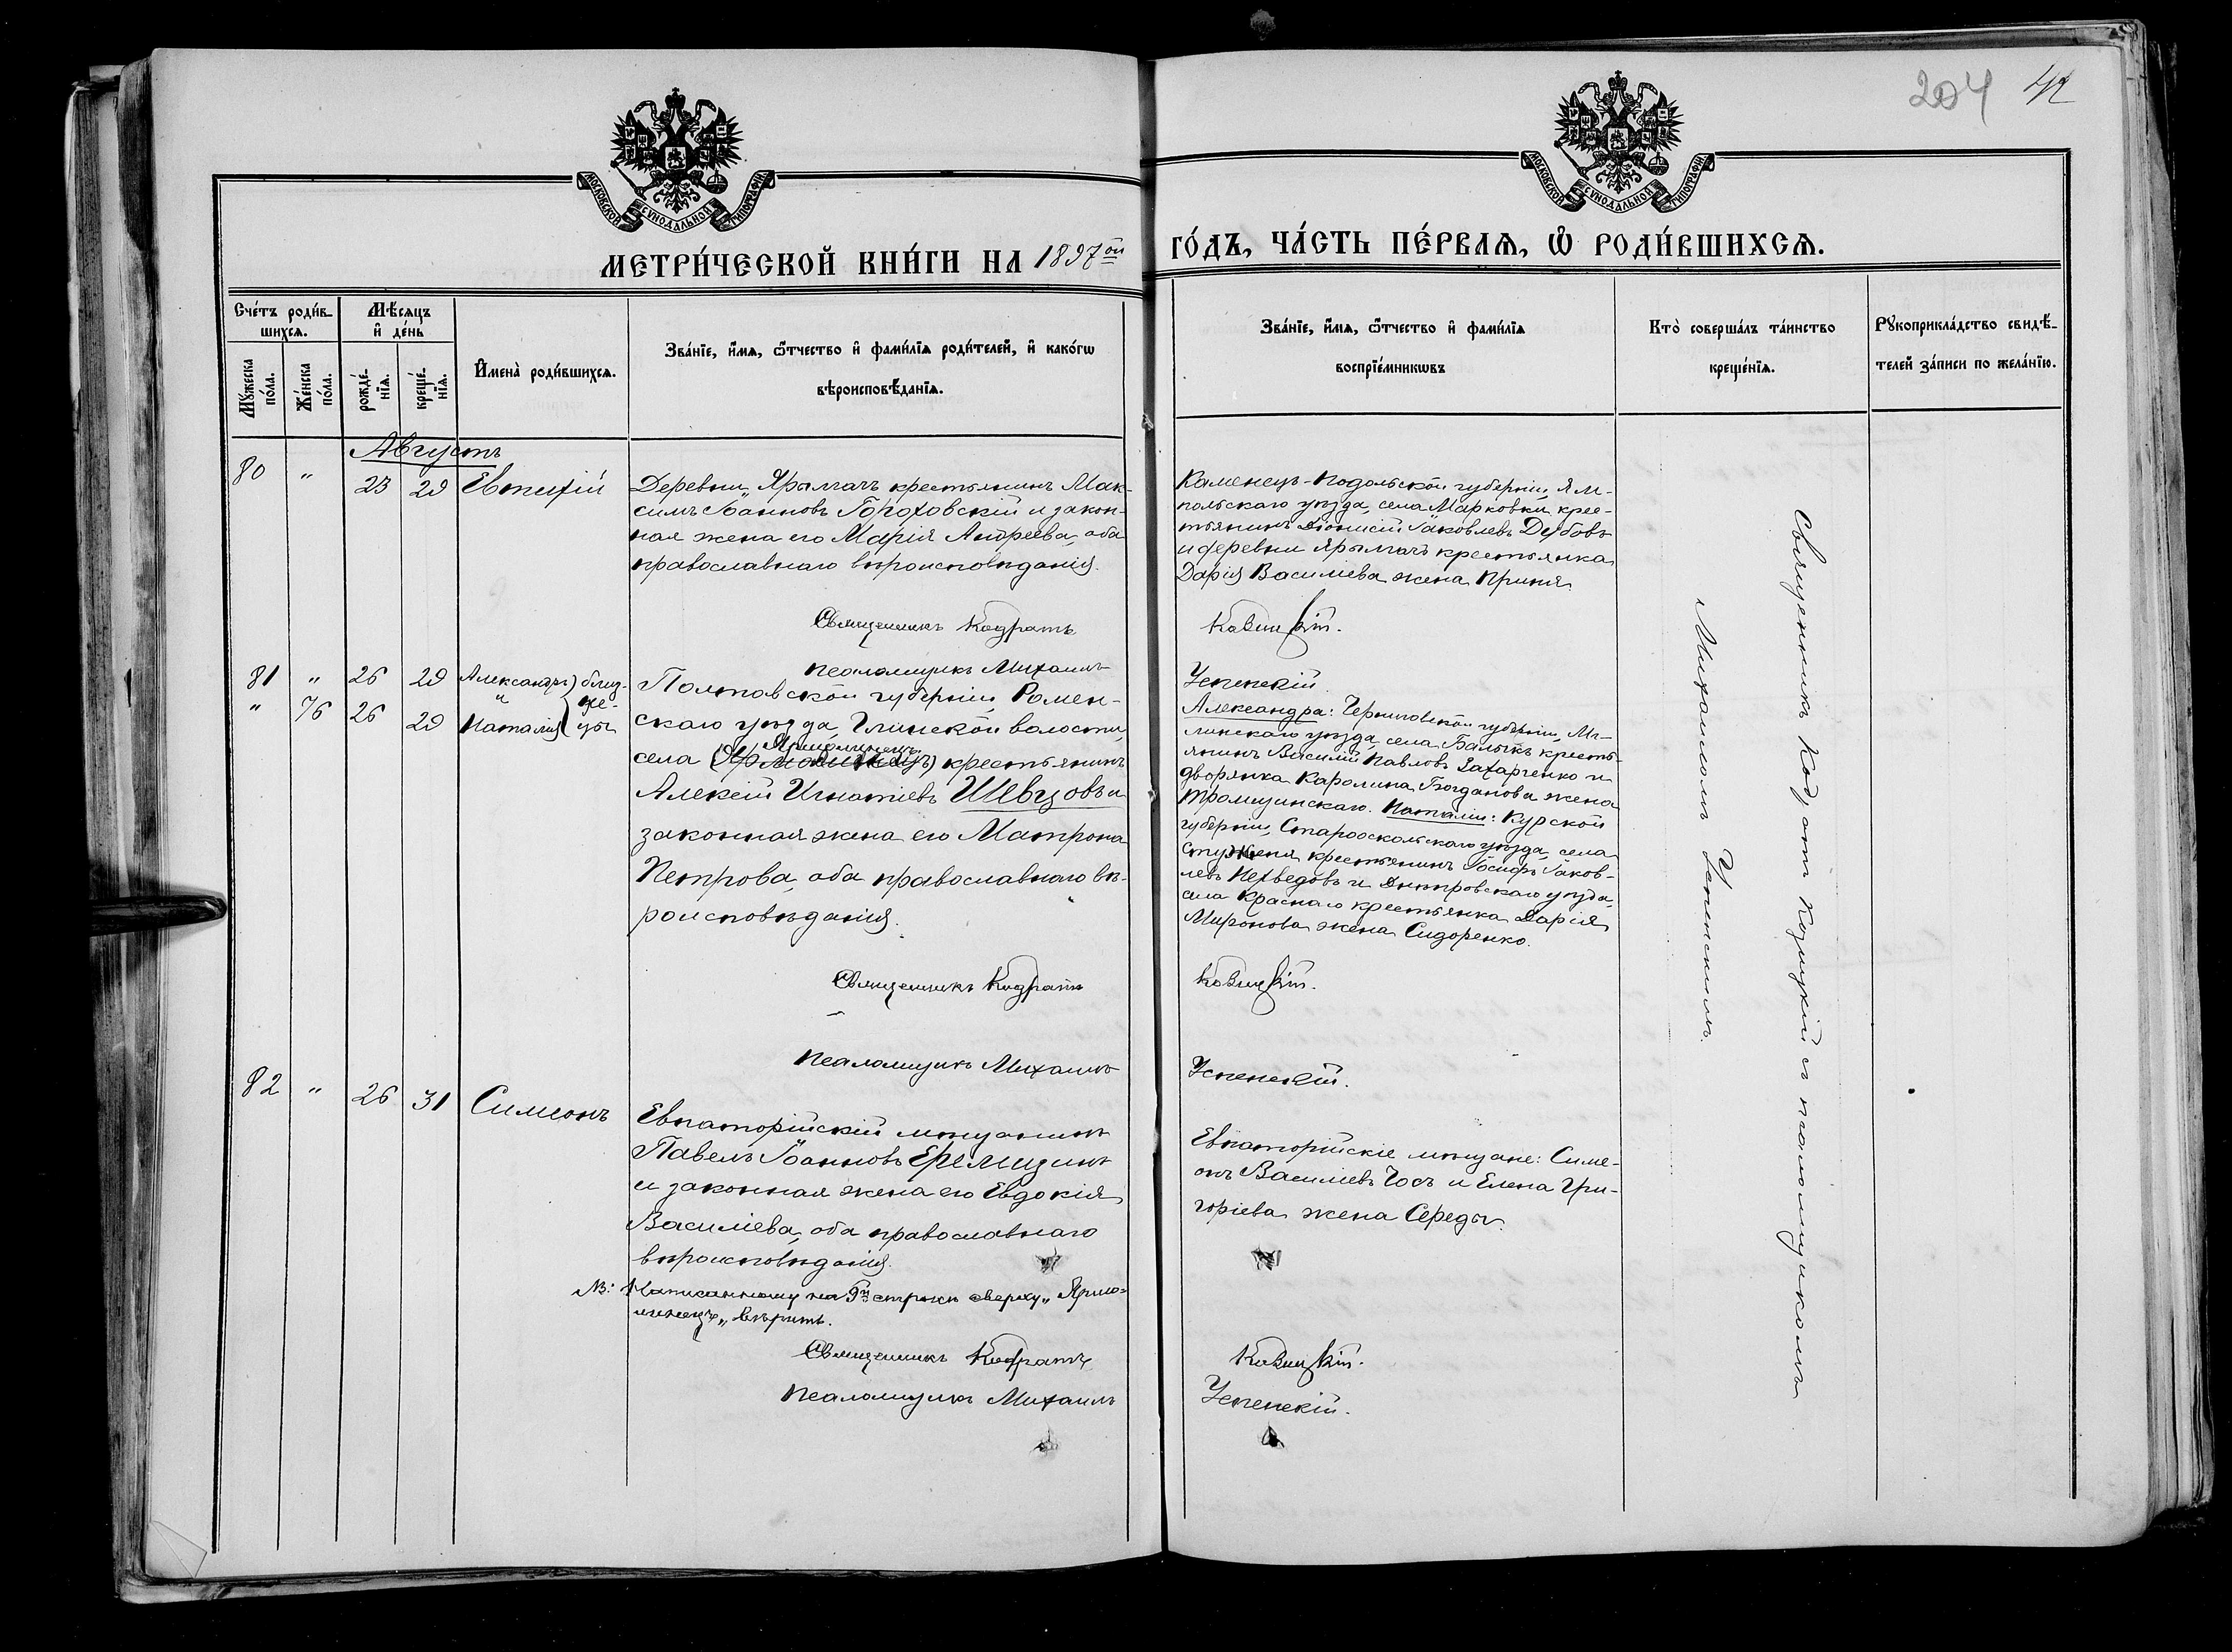 204 42
МОСКОВСКОЙ СѴНОДАЛЬНОЙ ТИПОГРАФІИ
МОСКОВСКОЙ СѴНОДАЛЬНОЙ ТИПОГРАФІИ
МЕТРИ́ЧЕСКОЙ КНИ́ГИ НА 1897ой
ГО́ДЪ, ЧА́СТЬ ПЕ́РВАѦ, Ѽ РОДИ́ВШИХСѦ.
Сче́тъ роди́в-
шихсѧ.
Мꙋ́жеска по́ла.
Же́нска по́ла.
Мѣ́сѧцъ
и҆ де́нь
рожде́-
нїѧ.
креще́-
нїѧ.
И҆мена̀ роди́вшихсѧ.
Зва́нїе, и҆́мѧ, ѻ҆́тчество и҆ фами́лїѧ роди́телей, и҆ како́гѡ
вѣроисповѣ́данїѧ.
Зва́нїе, и҆́мѧ, ѻ҆́тчество и҆ фами́лїѧ
воспрїе́мникѡвъ
Кто̀ соверша́лъ та́инство
креще́нїѧ.
Рꙋкоприкла́дство свидѣ́-
телей за́писи по жела́нїю.
Августъ
80 " 23 29 Евтихій
Деревни „Ярылгачъ крестьянинъ Мак-
симъ Іоанновъ Гороховскій и закон-
ная жена его Марія Андреева, оба
православнаго вѣроисповѣданія.
Священникъ Кодратъ
Псаломщикъ Михаилъ
Каменецъ-Подольской губерніи, Ям-
польскаго уѣзда, села Марковки крес-
тьянинъ Діонисій Іаковлевъ Дубовъ
и деревни Ярылгачъ крестьянка
Дарія Василіева жена
Козицкій.
Успенскій.
81 " 26 29 Александръ) близ-
" 76 26 29 Наталія не-
цы
Полтавской губерніи, Ромен-
скаго уѣзда, Глинской волости,
Ярмолинецъ
села крестьянинъ
Алексій Игнатіевъ Шевцовъ и
законная жена его Матрона
Петрова, оба православнаго вѣ-
роисповѣданія.
Священникъ Кодратъ
Псаломщикъ Михаилъ
Александра: Черниговской губерніи, Мг-
линскаго уѣзда, села кресть-
янинъ Василій Павловъ Захарченко и
дворянка Каролина Богданова жена
Наталіи: Курской
губерніи, Старооскольскаго уѣзда, села
крестьянинъ Іосифъ Іаков-
левъ и Днѣпровскаго уѣзда,
села Краснаго крестьянка Дарія
Миронова жена Сидоренко.
Козицкій.
Успенскій.
82 " 26 31 Симеонъ
Евпаторійскій мѣщанинъ
Павелъ Іоанновъ
и законная жена его Евдокія
Василіева, оба православнаго
вѣроисповѣданія.
NB: Написанному на 9й строкѣ сверху „Ярмо-
линецъ„ вѣрить.
Священникъ Кодратъ
Псаломщикъ Михаилъ
Евпаторійскіе мѣщане: Симе-
онъ Василіевъ и Елена Гри-
горіева жена Середы.
Козицкій.
Успенскій.
Священникъ Кодратъ Козицкій съ псаломщикомъ
Михаиломъ Успенскимъ.